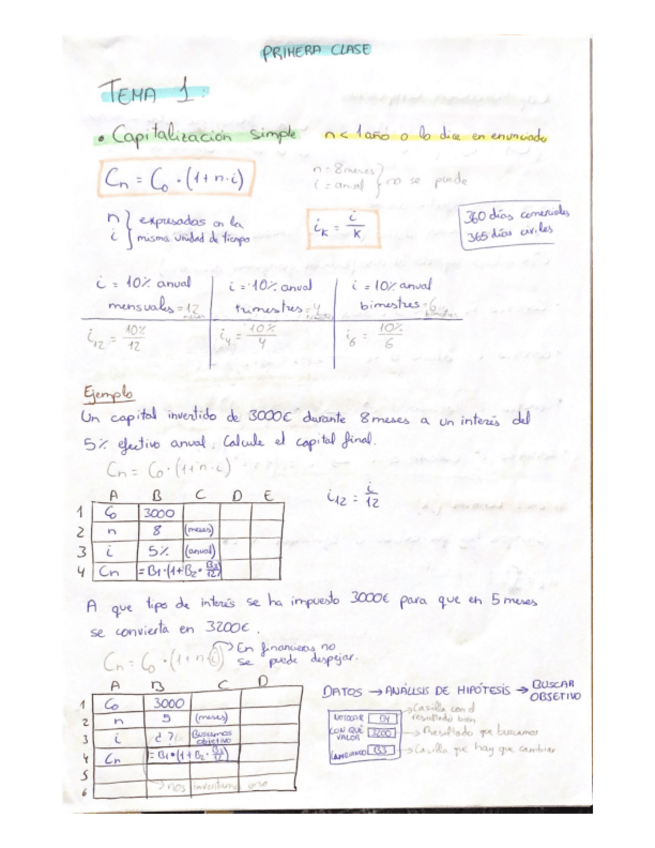 PRIMERA CLASE
TEMA 1:
• Capitalización simple n < 1 año o lo dice en enunciado
Cn = C0 · (1 + n · i)
n = 8 meses
i = anual } no se puede
n
i } expresadas en la misma unidad de tiempo
ik = i/k
360 días comerciales
365 días civiles
i = 10% anual i = 10% anual i = 10% anual
mensuales = 12 trimestres = 4 bimestres = 6
i12 = 10%/12 i4 = 10%/4 i6 = 10%/6
Ejemplo
Un capital invertido de 3000€ durante 8 meses a un interés del
5% efectivo anual. Calcule el capital final.
Cn = C0 · (1 + n · i)
i12 = i/12
A B C D E
1 C0 3000
2 n 8 (meses)
3 i 5% (anual)
4 Cn = B1 · (1 + B2 · B3/12)
A que tipo de interés se ha impuesto 3000€ para que en 5 meses
se convierta en 3200€.
Cn = C0 · (1 + n · i) → En financieras no
se puede despejar.
A B C D
1 C0 3000
2 n 5 (meses)
3 i ¿? Buscamos objetivo
4 Cn = B1 · (1 + B2 · B3/12)
5
6 → nos inventamos
DATOS → ANÁLISIS DE HIPÓTESIS → BUSCAR
OBJETIVO
→ Casilla con el
resultado bien
CON QUÉ VALOR 3200 → Resultado que buscamos
CAMBIANDO B3 → Casilla que hay que cambiar